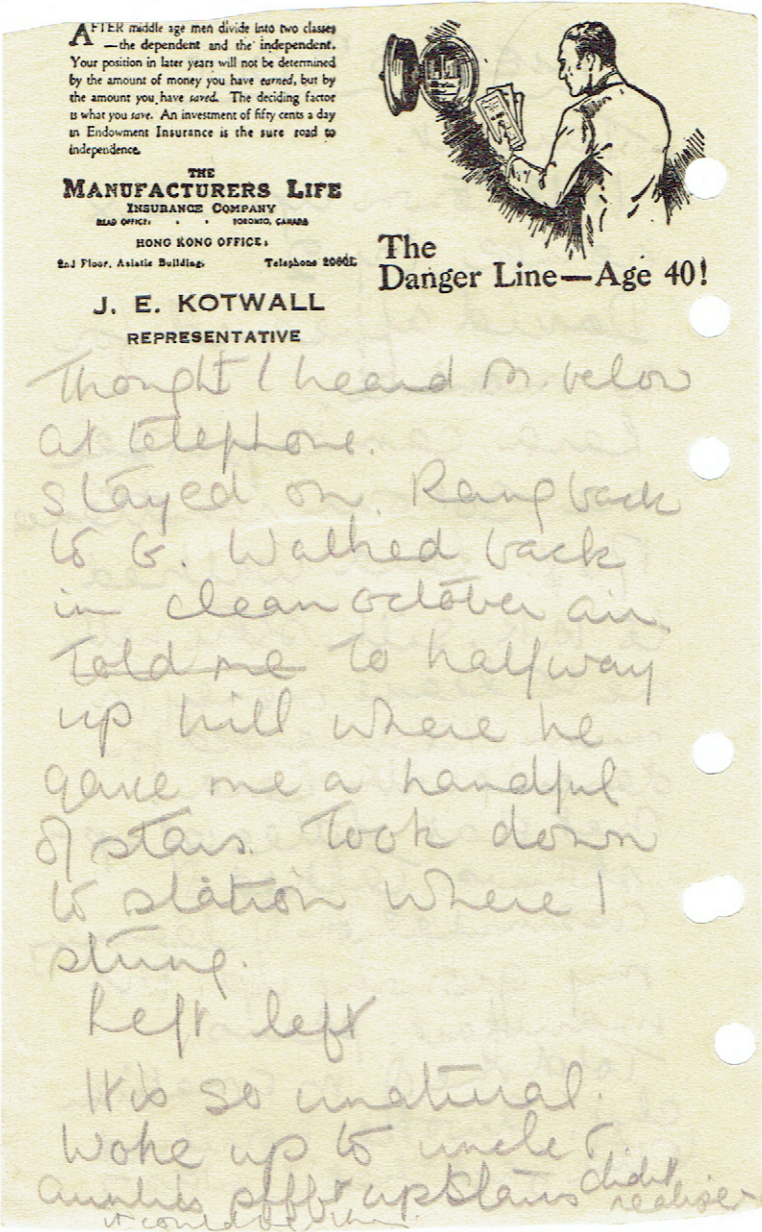 AFTER middle age men divide into two classes
—the dependent and the independent.
Your position in later years will not be determined
by the amount of money you have earned, but by
the amount you have saved. The deciding factor
is what you save. An investment of fifty cents a day
in Endowment Insurance is the sure road to
independence.
THE
MANUFACTURERS LIFE
INSURANCE COMPANY
HEAD OFFICE, TORONTO, CANADA
HONG KONG OFFICE:
2nd Floor, Asiatic Building, Telephone
The
Danger Line—Age 40!
J. E. KOTWALL
REPRESENTATIVE
Thought I heard M. below
at telephone.
stayed on. Rang back
to G. Walked back
in clean october air.
Told me to halfway
up hill where he
gave me a handful
of stars. Took down
to station where I
stung.
Left left
It is so unnatural.
Woke up to uncle
Aunties upstairs didnt
realise
it could be them.